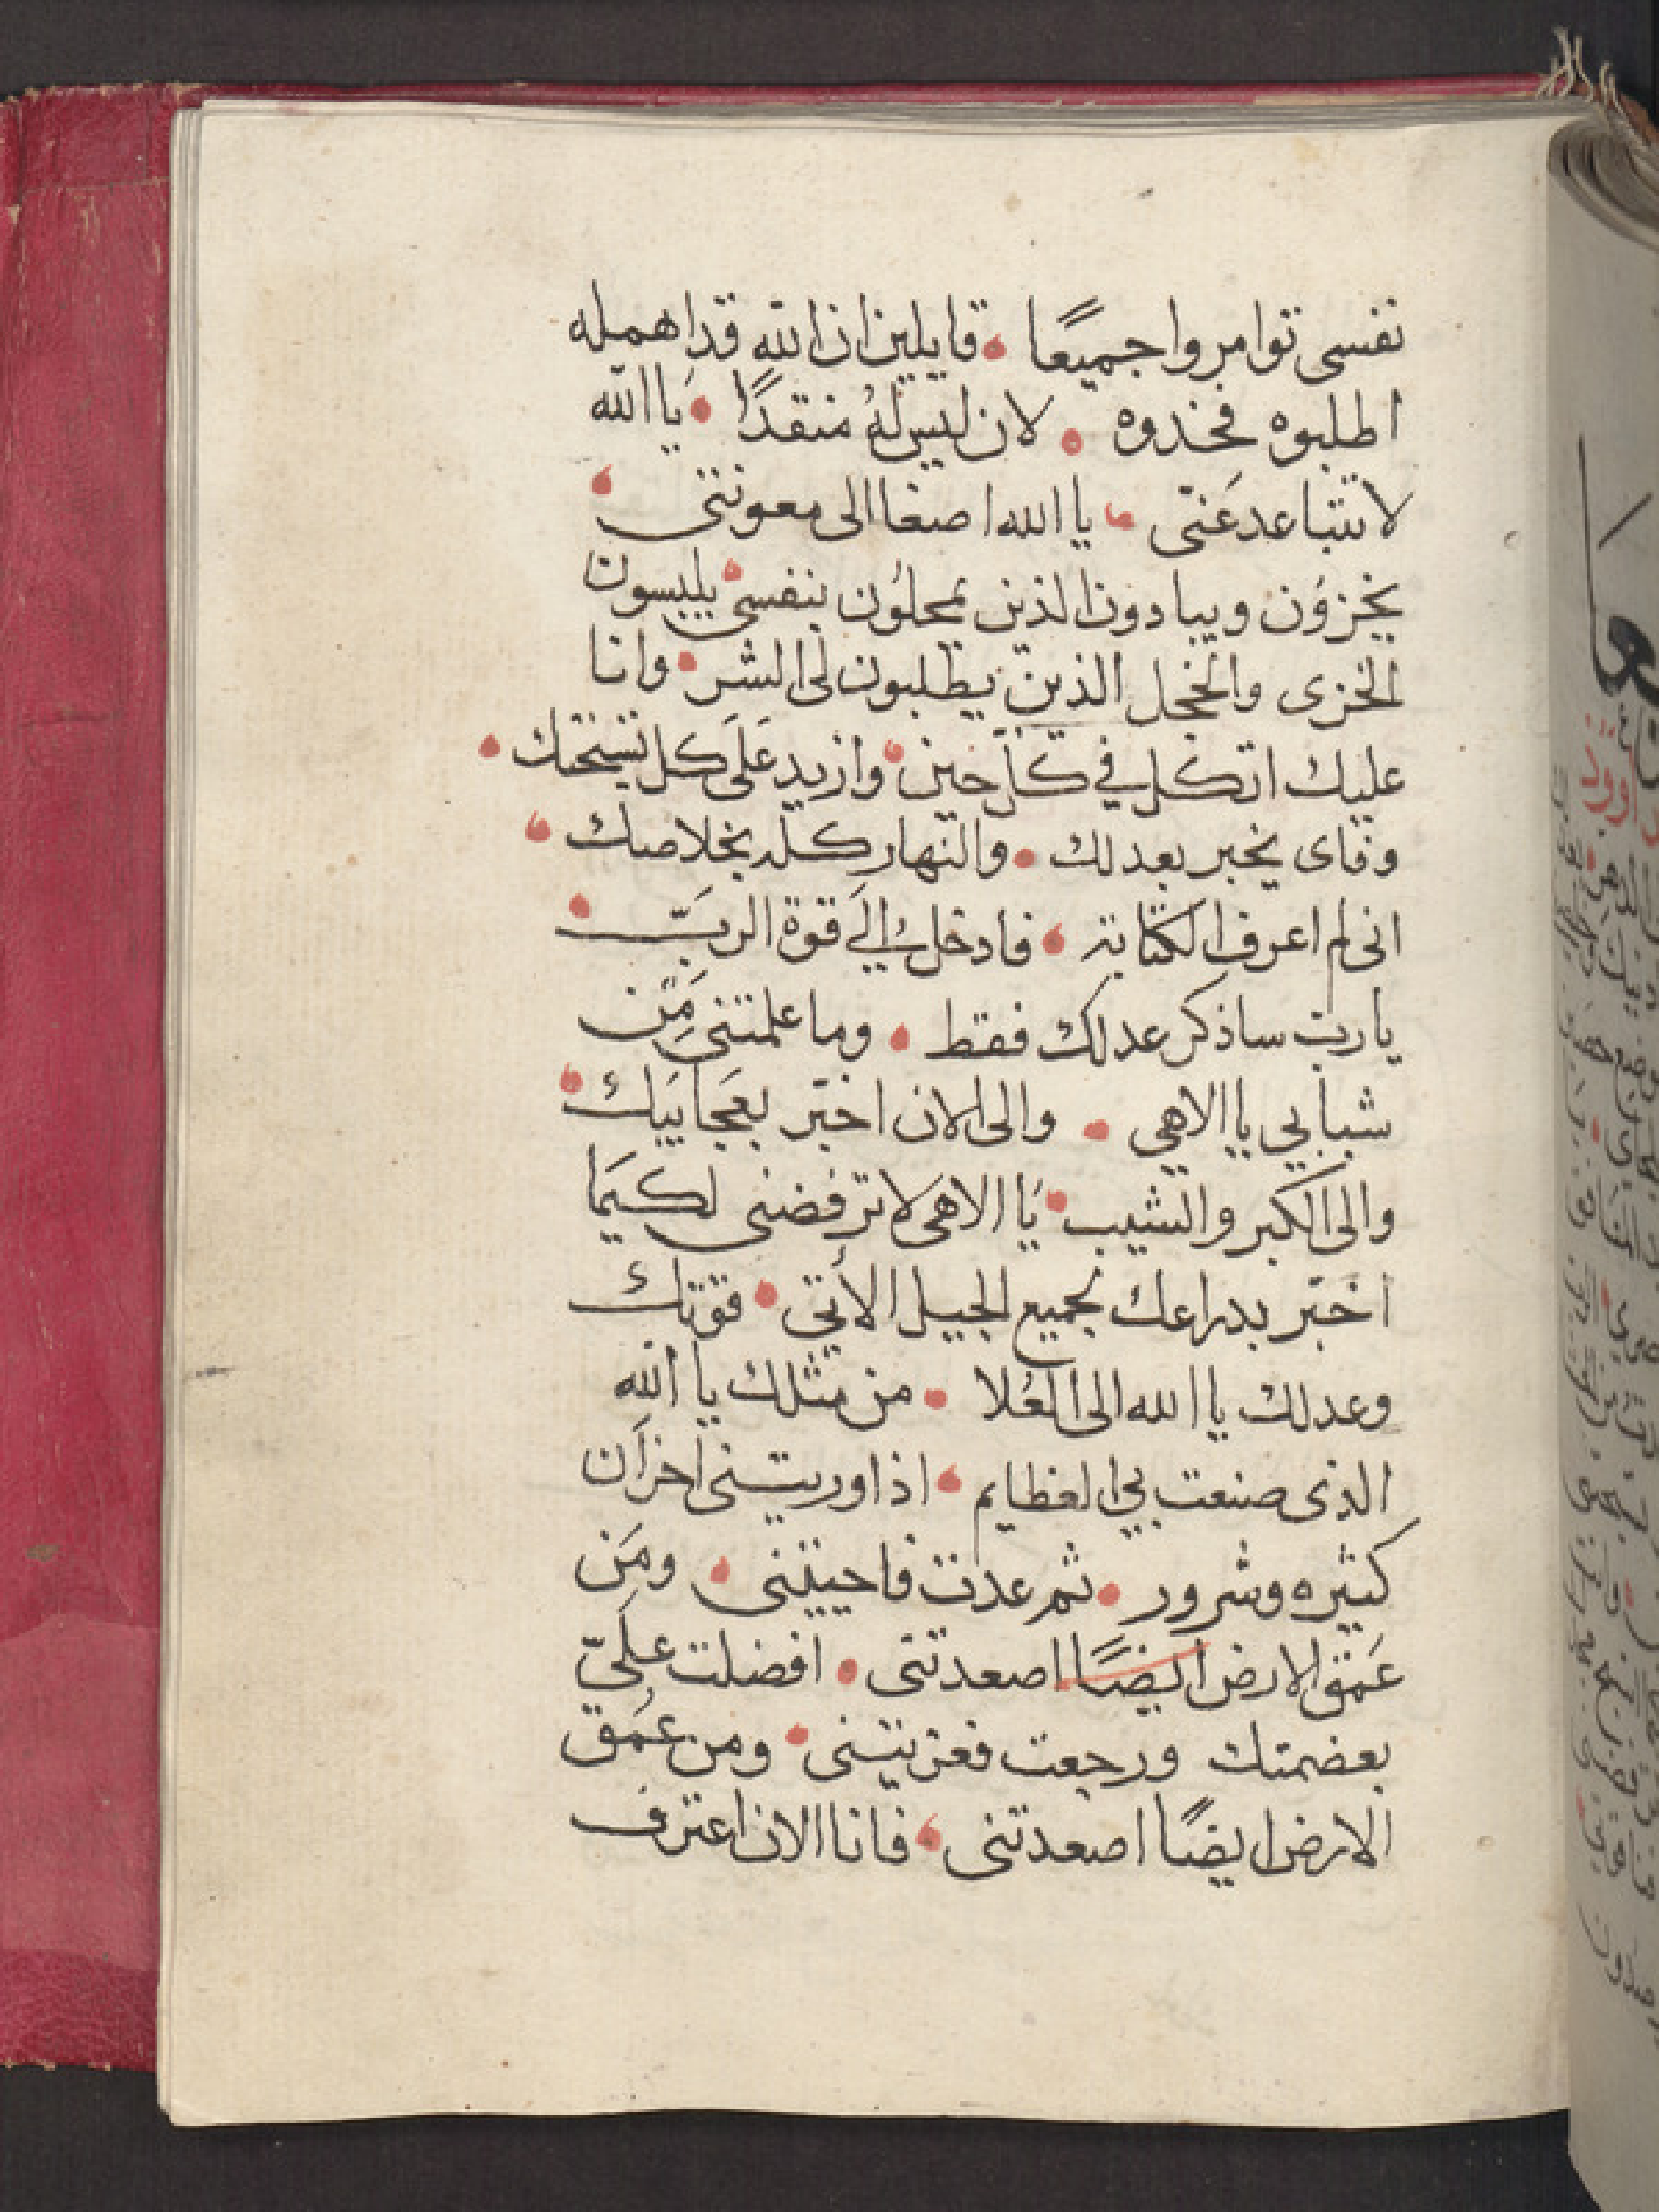 نفسى توامروا جميعًا • قايلين ان الله قد اهمله
اطلبوه فخدوه • لان ليس لهُ منقدًا • يا الله
لا تتباعد عَنّى • يا الله اصغا الى معونتى •
يخزوُن ويبادون الذين يمحلوُن بنفسى • يلبسون
الخزى والخجل الذين يطلبون لى الشر • وانا
عليك اتكل في كل حين • وازيد عَلَى كل تسبحتك •
وفاى يخبر بعدلك • والنهار كله بخلاصك •
انى لم اعرف الكتابة • فادخل الَى قوة الربّ •
يا رب ساذكر عدلك فقط • وما علمتنى مِن
شبابي يا الاهي • والى الان اخبّر بعَجَايبَك •
والى الكبر والشيب • يَا الاهى لا ترفضنى لكيمَا
اخبّر بدراعك لجميع الجيل الأتي • قوّتك
وعدلك يا الله الى العُلا • من مثلك يا الله
الذى صنعت بي العظايم • اذا وريتنى احزان
كثيره وشرور • ثم عدت فاحييتنى • ومَن
عَمق الارض ايضًا اصعدتنى • افضلت علَيّ
بعضمتك ورجعت فعزيتنى • ومن عمَق
الارض ايضًا اصعدتنى • فانا الان اعترف